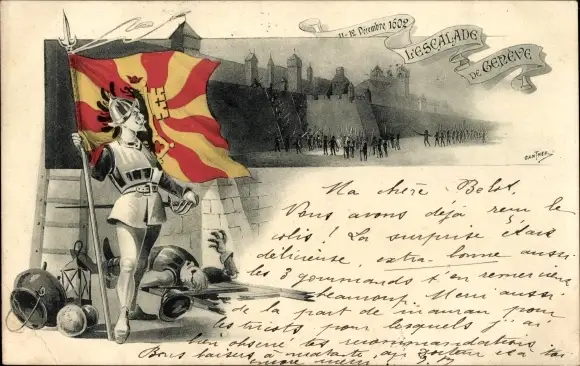 11-12 Décembre 1602
L'ESCALADE
DE GENÈVE
GANTNER
Ma chère Bebet,
Vous avons déjà reçu le
colis! La surprise était
délicieuse, extra-bonne aussi
les 3 gommands t'en remercient
beaucoup. Merci aussi
de la part de maman pour
les tricots pour lesquels j'ai
bien observé tes recommandations.
Bons baisers, à ma tante, au docteur et à ta
encore merci! J. M.